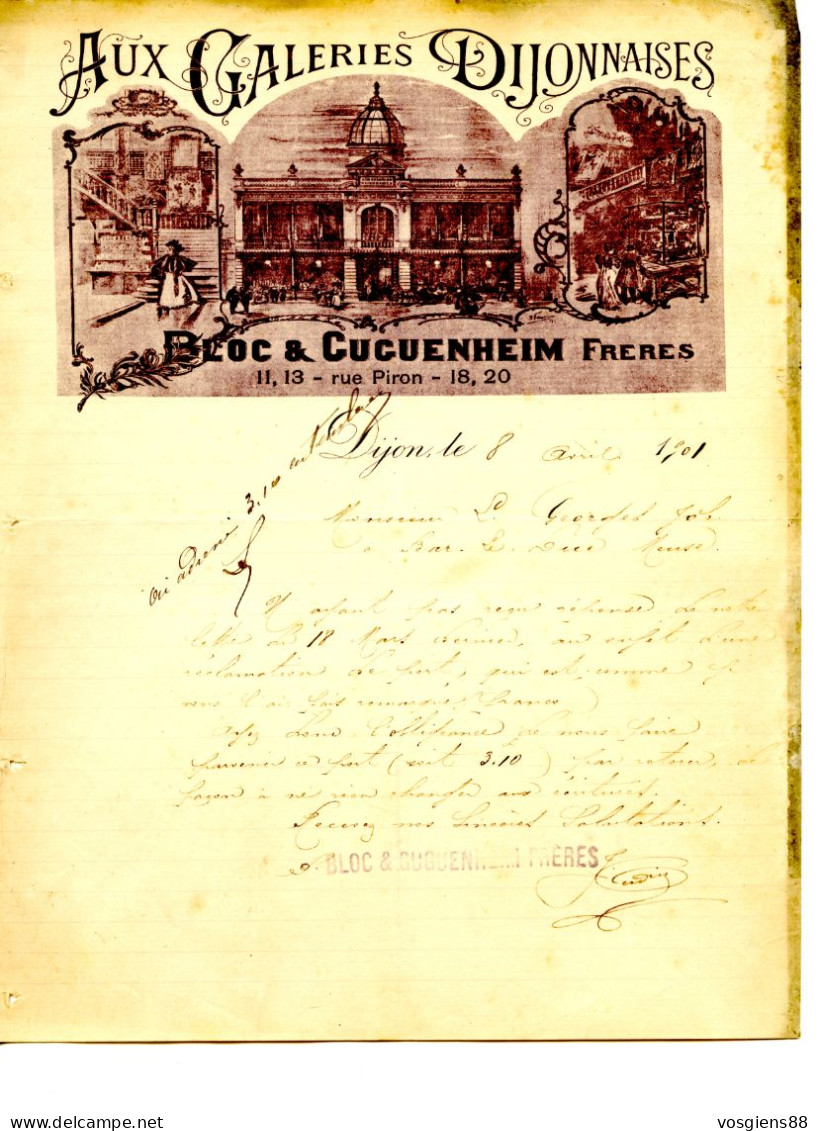 AUX GALERIES DIJONNAISES
BLOC & GUGUENHEIM FRERES
11, 13 - rue Piron - 18, 20
Dijon, le 8 Avril 1901
3.10
Monsieur L. Georges Job
a Bar-le-Duc Meuse.
N'ayant pas reçu réponse de notre
lettre du 18 Mars dernier, au sujet d'une
réclamation de port, qui est, comme je
vous l'ai fais remarquer, franco
Ayez donc l'obligeance de nous faire
parvenir ce port (soit 3.10) par retour, de
façon à ne rien changer aux écritures.
Recevez nos sincères salutations.
BLOC & GUGUENHEIM FRÈRES
vosgiens88